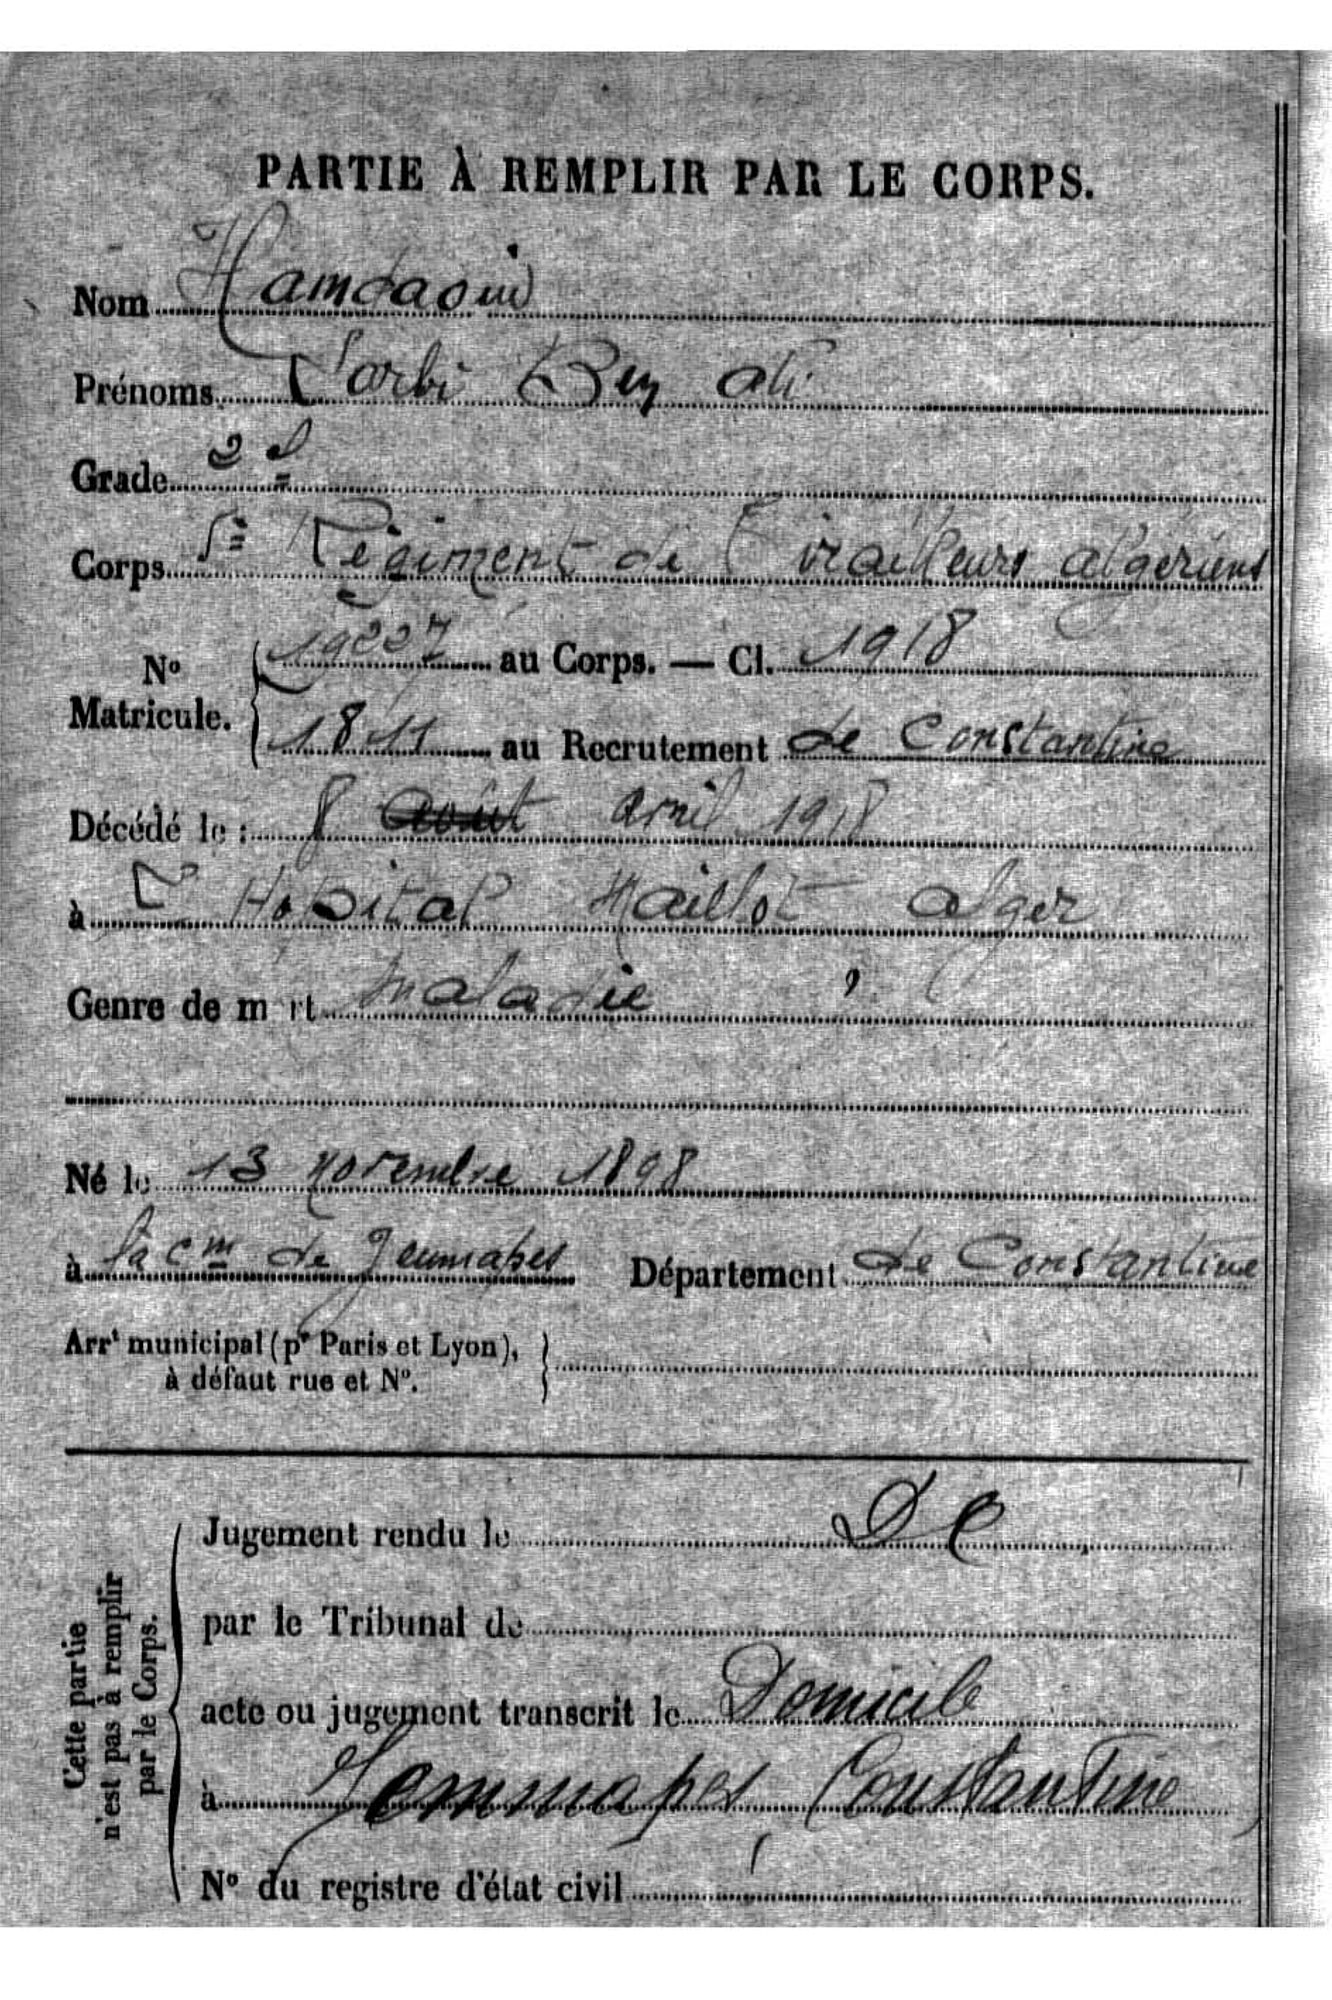 PARTIE À REMPLIR PAR LE CORPS.
Nom Hamdaoui
Prénoms Larbi Ben Ali
Grade 2e
Corps 5e Régiment de Tirailleurs algériens
No Matricule. 19227 au Corps. — Cl. 1918
1811 au Recrutement de Constantine
Décédé le : 8 août avril 1918
à L'Hopital Maillot alger
Genre de mort maladie
Né le 13 novembre 1898
à la cm de Jemmapes Département de Constantine
Arrt municipal (pr Paris et Lyon),
à défaut rue et No.
Cette partie
n'est pas à remplir
par le Corps.
Jugement rendu le DC
par le Tribunal de
acte ou jugement transcrit le Domicile
à Jemmapes Constantine
No du registre d'état civil